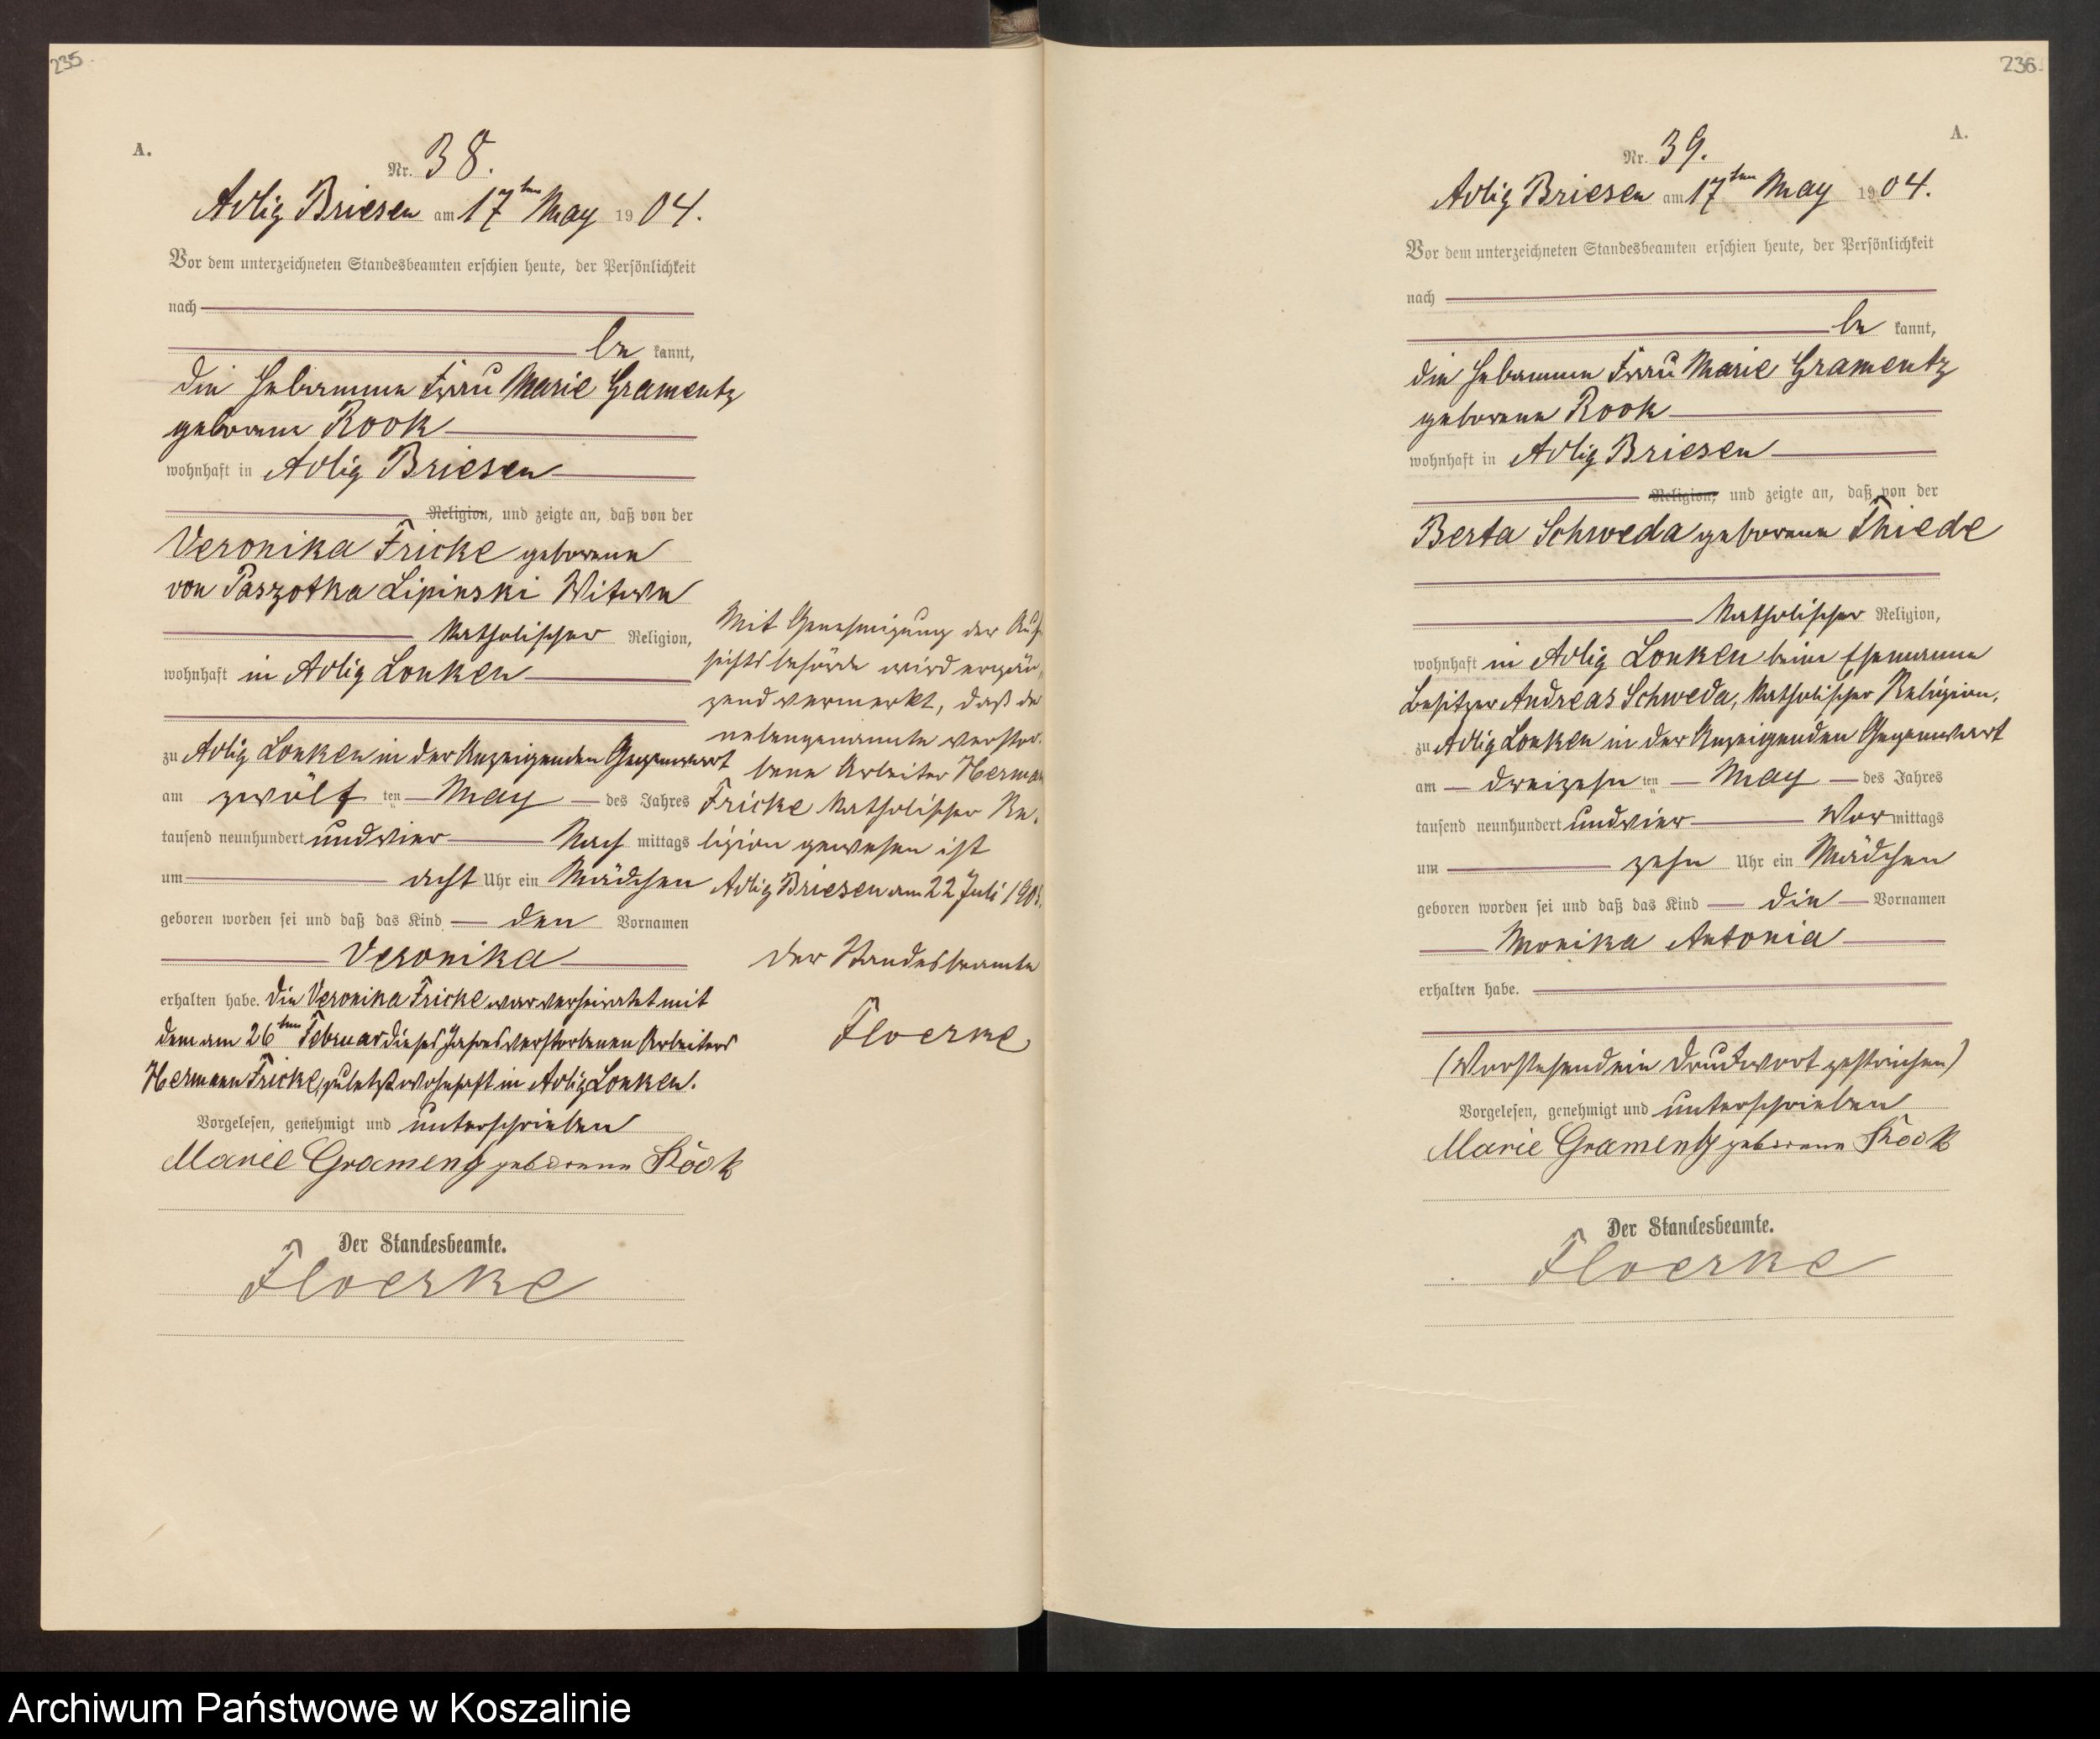 235.
A.
Nr. 38.
Adlig Briesen am 17ten May 1904.
Vor dem unterzeichneten Standesbeamten erschien heute, der Persönlichkeit
nach
be kannt,
die Hebamme Frau Marie Gramentz
geborene Rook
wohnhaft in Adlig Briesen
Religion, und zeigte an, daß von der
Veronika Fricke geborene
von Paszotka Lipinski Witwe
katholischer Religion,
wohnhaft in Adlig Lonken
zu Adlig Lonken in der Anzeigenden Gegenwart
am zwölf ten May des Jahres
tausend neunhundert und vier Nach mittags
um acht Uhr ein Mädchen
geboren worden sei und daß das Kind den Vornamen
Veronika
erhalten habe. Die Veronika Fricke war verheiratet mit
dem am 26ten Februar dieses Jahres verstorbenen Arbeiters
Hermann Fricke, zuletzt wohnhaft in Adlig Lonken.
Vorgelesen, genehmigt und unterschrieben
Marie Gramentz geborene Rook
Der Standesbeamte.
Floerke
Mit Genehmigung der Auf-
sichtsbehörde wird ergän-
zend vermerkt, daß der
nebengenannte verstor-
bene Arbeiter Hermann
Fricke katholischer Re-
ligion gewesen ist
Adlig Briesen am 22 Juli
Der Standesbeamte
Floerke
236.
A.
Nr. 39.
Adlig Briesen am 17ten May 1904.
Vor dem unterzeichneten Standesbeamten erschien heute, der Persönlichkeit
nach
be kannt,
die Hebamme Frau Marie Gramentz
geborene Rook
wohnhaft in Adlig Briesen
Religion, und zeigte an, daß von der
Berta Schweda geborene Thiede
katholischer Religion,
wohnhaft in Adlig Lonken beim Ehemanne
Besitzer Andreas Schweda, katholischer Religion,
zu Adlig Lonken in der Anzeigenden Gegenwart
am dreizehn ten May des Jahres
tausend neunhundert und vier Vor mittags
um zehn Uhr ein Mädchen
geboren worden sei und daß das Kind die Vornamen
Monika Antonia
erhalten habe.
(Vorstehend ein Druckwort gestrichen)
Vorgelesen, genehmigt und unterschrieben
Marie Gramentz geborene Rook
Der Standesbeamte.
Floerke
Archiwum Państwowe w Koszalinie